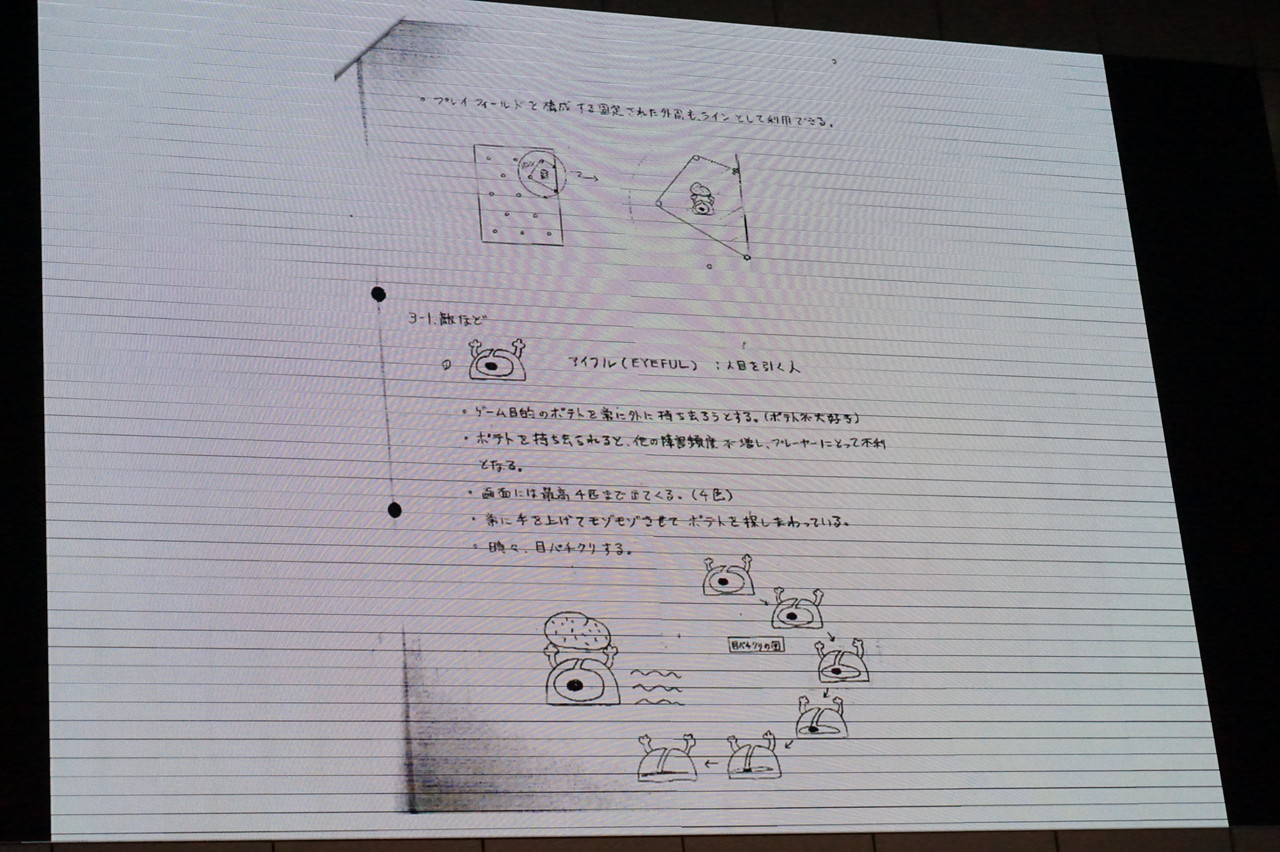 • プレイフィールドを構成する固定された外固もラインとして利用できる。
3-1. 敵など
① アイフル(EYEFUL) : 人目を引く人
• ゲーム目的のポテトを常に外に持ち去ろうとする。(ポテトが大好き)
• ポテトを持ち去られると、他の障害頻度が増し、プレーヤーにとって不利
となる。
• 画面には最高4匹まで出てくる。(4色)
• 常に手を上げてモゾモゾさせてポテトを探しまわっている。
• 時々、目パチクリする。
目パチクリの図